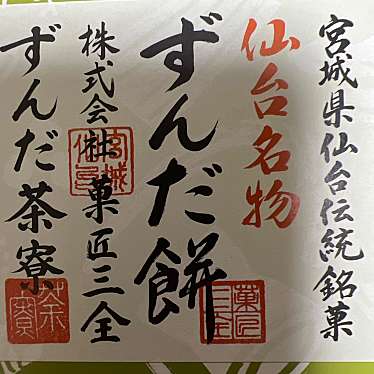 宮城県仙台伝統銘菓
仙台名物
ずんだ餅
株式会社 菓匠三全
ずんだ茶寮
菓匠三全
茶寮